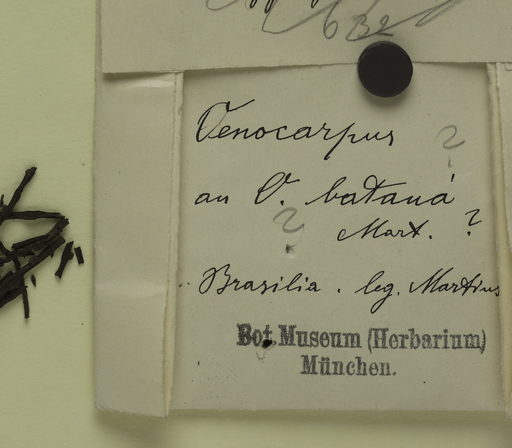 632
Oenocarpus ?
an O. bataná
? Mart. ?
Brasilia . leg. Martius
Bot. Museum (Herbarium)
München.